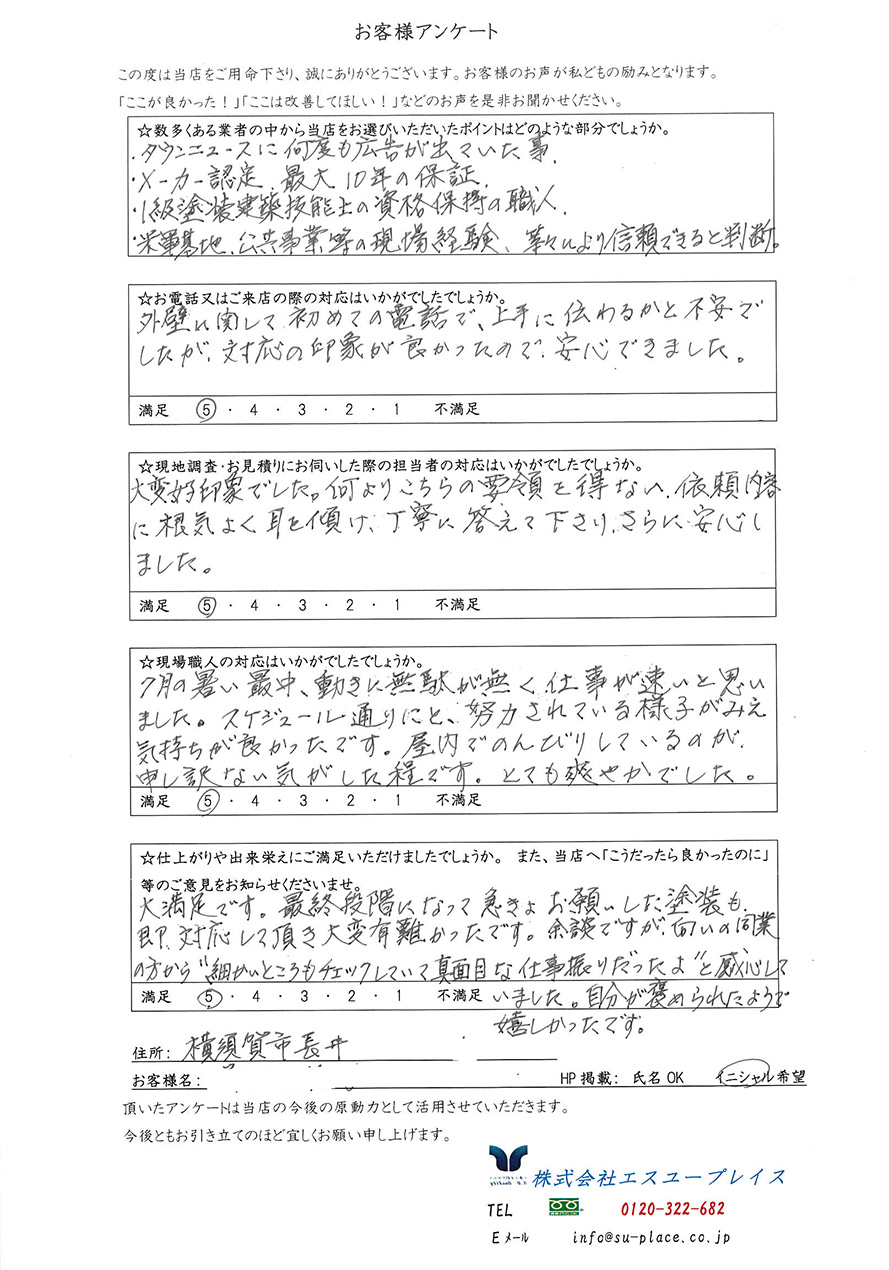 お客様アンケート
この度は当店をご用命下さり、誠にありがとうございます。お客様のお声が私どもの励みとなります。
「ここが良かった!」「ここは改善してほしい!」などのお声を是非お聞かせください。
☆数多くある業者の中から当店をお選びいただいたポイントはどのような部分でしょうか。
・タウンニュースに何度も広告が出ていた事.
・メーカー認定.最大10年の保証.
・1級塗装建築技能士の資格保持の職人.
・米軍基地、公共事業等の現場経験、等々により信頼できると判断。
☆お電話又はご来店の際の対応はいかがでしたでしょうか。
外壁に関して初めての電話で、上手に伝わるかと不安で
したが、対応の印象が良かったので、安心できました。
満足 5・4・3・2・1 不満足
☆現地調査・お見積りにお伺いした際の担当者の対応はいかがでしたでしょうか。
大変好印象でした。何よりこちらの要領を得ない、依頼内容
に根気よく耳を傾け、丁寧に答えて下さり、さらに安心し
ました。
満足 5・4・3・2・1 不満足
☆現場職人の対応はいかがでしたでしょうか。
7月の暑い最中、動きに無駄が無く仕事が速いと思い
ました。スケジュール通りにと、努力されている様子がみえ
気持ちが良かったです。屋内でのんびりしているのが、
申し訳ない気がした程です。とても爽やかでした。
満足 5・4・3・2・1 不満足
☆仕上がりや出来栄えにご満足いただけましたでしょうか。 また、当店へ「こうだったら良かったのに」
等のご意見をお知らせくださいませ。
大満足です。最終段階になって急きょお願いした塗装も、
即、対応して頂き大変有難かったです。余談ですが、向いの同業
の方から"細かいところもチェックしていて真面目な仕事振りだったよ"と感心して
満足 5・4・3・2・1 不満足 いました。自分が褒められたようで
嬉しかったです。
住所: 横須賀市長井
お客様名: HP掲載: 氏名OK イニシャル希望
頂いたアンケートは当店の今後の原動力として活用させていただきます。
今後ともお引き立てのほど宜しくお願い申し上げます。
株式会社エスユープレイス
TEL 0120-322-682
Eメール info@su-place.co.jp